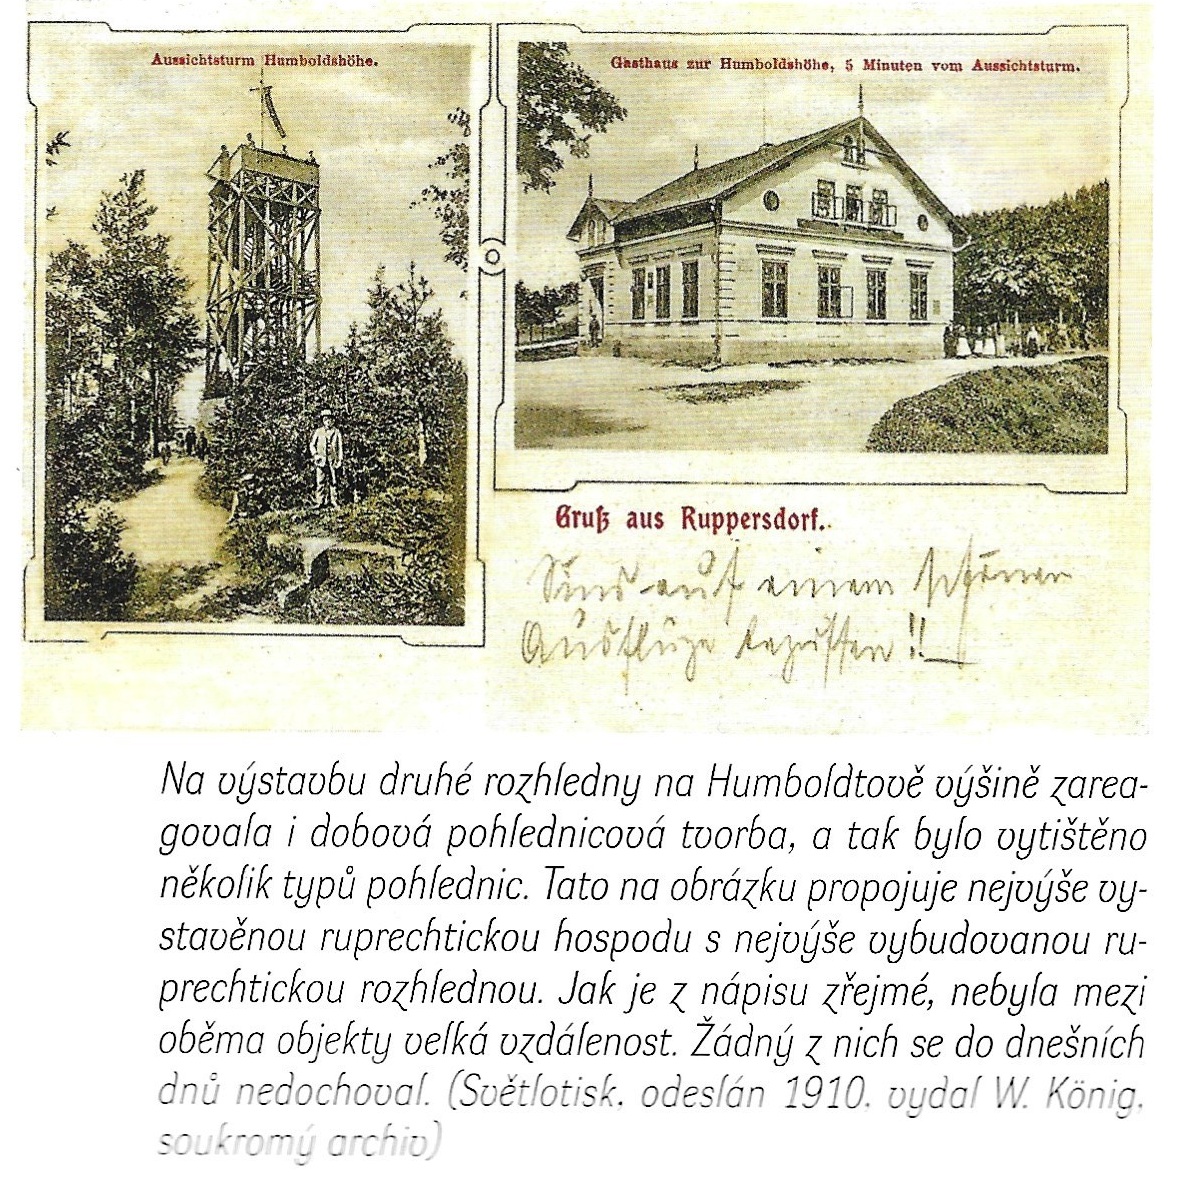 Aussichtsturm Humboldshöhe.
Gasthaus zur Humboldshöhe, 5 Minuten vom Aussichtsturm.
Gruß aus Ruppersdorf.
Sind auf einem schönen
Ausfluge begriffen!!
Na výstavbu druhé rozhledny na Humboldtově výšině zarea-
govala i dobová pohlednicová tvorba, a tak bylo vytištěno
několik typů pohlednic. Tato na obrázku propojuje nejvýše vy-
stavěnou ruprechtickou hospodu s nejvýše vybudovanou ru-
prechtickou rozhlednou. Jak je z nápisu zřejmé, nebyla mezi
oběma objekty velká vzdálenost. Žádný z nich se do dnešních
dnů nedochoval. (Světlotisk, odeslán 1910, vydal W. König,
soukromý archiv)